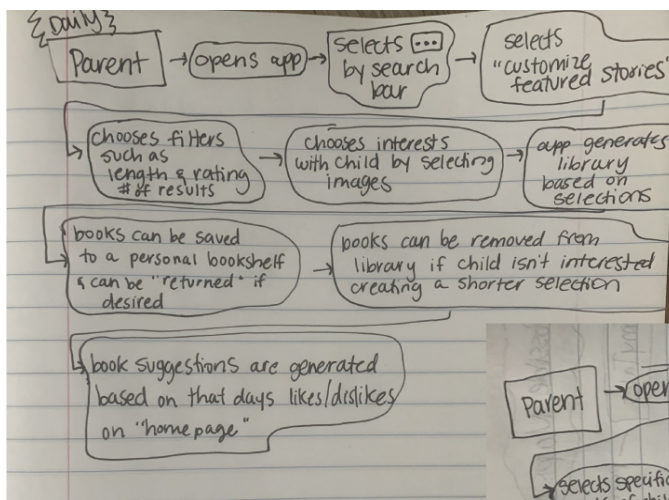 {Daily}
Parent
opens app
selects ...
by search
bar
selects
"customize
featured stories"
chooses filters
such as
length & rating
# of results
chooses interests
with child by selecting
images
app generates
library
based on
selections
books can be saved
to a personal bookshelf
& can be "returned" if
desired
books can be removed from
library if child isn't interested
creating a shorter selection
book suggestions are generated
based on that days likes/dislikes
on "homepage"
Parent
open
selects specific